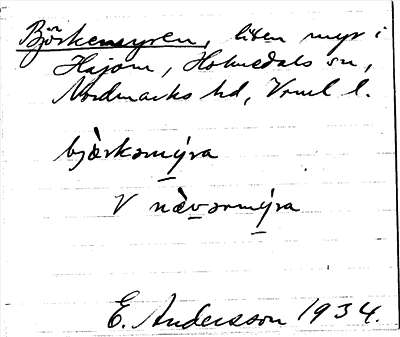 Björkemyren, liten myr i
Hajom, Holmedals sn,
Nordmarks hd, Vrml l.
bjɶ̀rkəmýra
V nævərmýra
E. Andersson 1934.